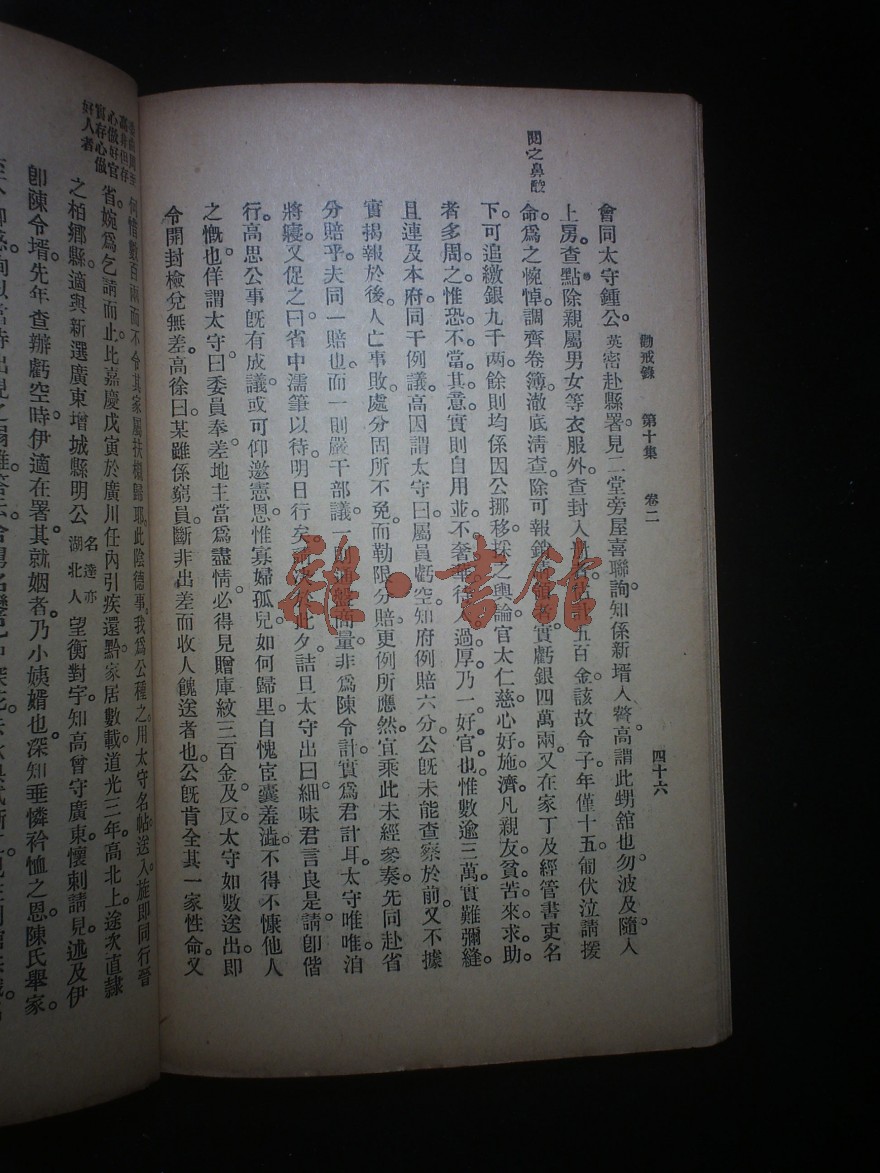 勸戒錄　第十集　卷二　四十六
閱之鼻酸
會同太守鍾公英密赴縣署見二堂旁屋喜聯詢知係新壻入贅高謂此甥舘也勿波及隨入
上房查點除親屬男女等衣服外查封入估計五百金該故令子年僅十五匍伏泣請援
命爲之惋悼調齊卷簿澈底清查除可報銷請領者實虧銀四萬兩又在家丁及經管書吏名
下可追繳銀九千兩餘則均係因公挪移採之輿論官太仁慈心好施濟凡親友貧苦來求助
者多周之惟恐不當其意實則自用並不奢華待人過厚乃一好官也惟數逾三萬實難彌縫
且連及本府同干例議高因謂太守曰屬員虧空知府例賠六分公旣未能查察於前又不據
實揭報於後人亡事敗處分固所不免而勒限分賠更例所應然宜乘此未經參奏先同赴省
分賠乎夫同一賠也而一則嚴干部議一則通盤商量非爲陳令計實爲君計耳太守唯唯洎
將寢又促之曰省中濡筆以待明日行矣此夕詰旦太守出曰細味君言良是請卽偕
行高思公事旣有成議或可仰邀憲恩惟寡婦孤兒如何歸里自愧宦囊羞澁不得不慷他人
之慨也佯謂太守曰委員奉差地主當爲盡情必得見贈庫紋三百金及反太守如數送出卽
令開封檢兌無差高徐曰某雖係窮員斷非出差而收人餽送者也公旣肯全其一家性命又
何惜數百兩而不令其家屬扶櫬歸耶此陰德事我爲公種之用太守名帖送入施卽同行晉
省婉爲乞請而止比嘉慶戊寅於廣川任內引疾還黔家居數載道光三年高北上途次直隸
之柏鄉縣適與新選廣東增城縣明公名達亦湖北人望衡對宇知高曾守廣東懷刺請見述及伊
卽陳令壻先年查辦虧空時伊適在署其就姻者乃小姨婿也深知垂憐衿恤之恩陳氏舉家
心做好官
實存心做
好人者
雜·書館